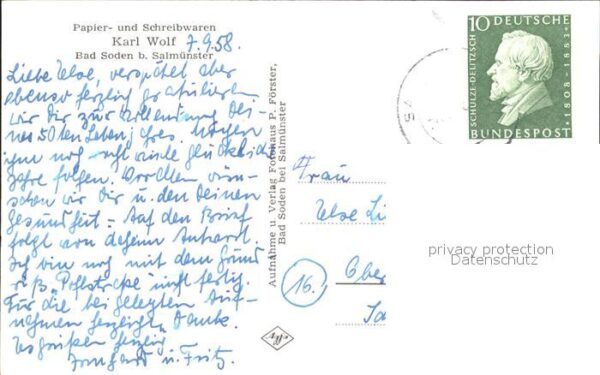 Papier- und Schreibwaren
Karl Wolf 7.9.58.
Bad Soden b. Salmünster
Liebe Ilse, verspätet aber
ebenso herzlich gratulieren
wir Dir zur Vollendung Dei-
nes 50ten Lebensjahres. Mögen
ihm noch recht viele glückliche
Jahre folgen. Vor allem wün-
schen wir Dir u. den Deinen
Gesundheit. Auf den Brief
folgt von daheim Antwort.
Ich bin noch mit dem
"Poststraße" nicht fertig.
Für die beigelegten Auf-
nehmen herzlichst Danke.
Es grüßen herzlich
Irmgard u. Fritz.
Aufnahme u. Verlag Fotohaus P. Förster,
Bad Soden bei Salmünster
10 DEUTSCHE
SCHULZE-DELITZSCH
1808-1883
BUNDESPOST
Frau
Ilse Li
16
Ober
privacy protection
Datenschutz